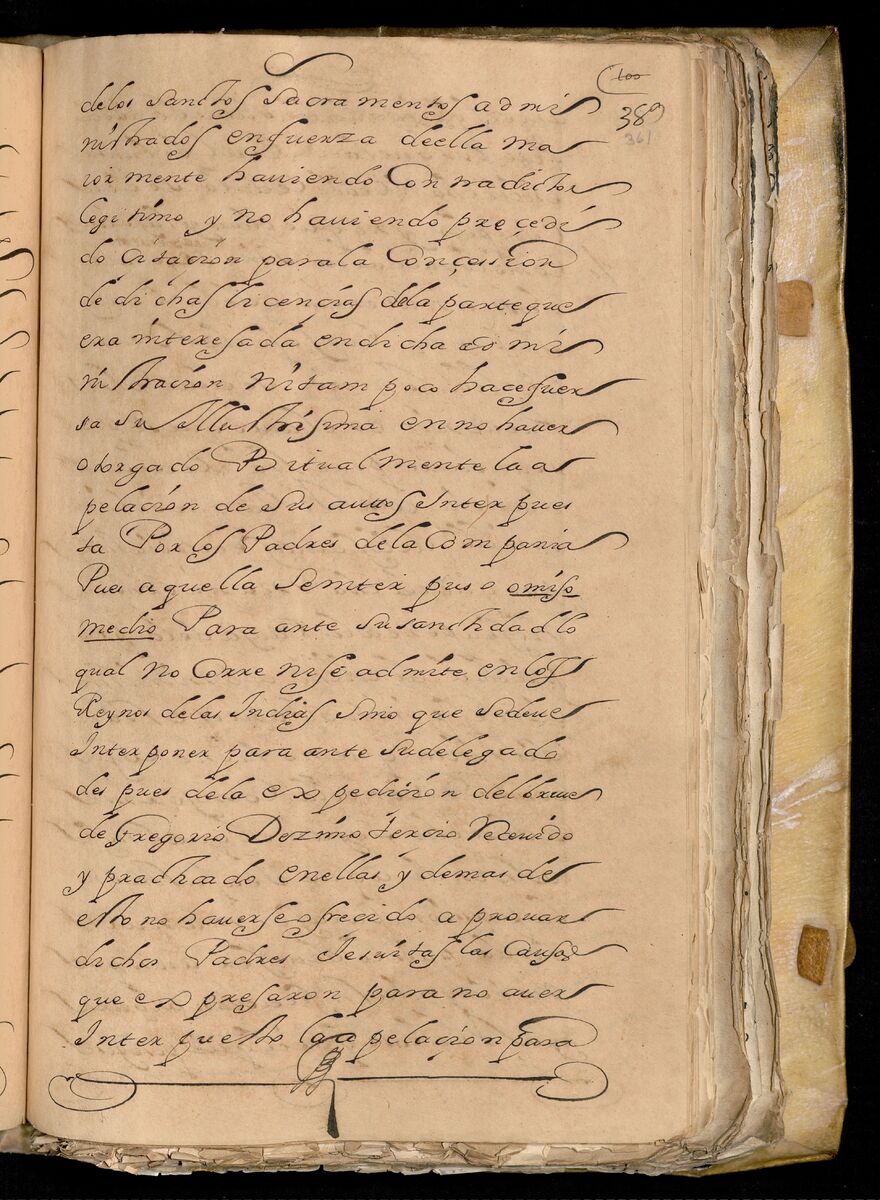 100
389
361
delos sanctos sacramentos admi
nistrados enfuerza deella ma
iormente haviendo Contradictor
legitimo y no haviendo preçedi
do citación parala Conçession
de dichas licençias dela parteque
era interesada endicha admi
nistraçión nitampoco hacefuer
sa su Illustrisima en no haver
otorgado Ritualmente laa
pelaçión de sus auttos Interpues
ta Porlos Padres dela Compania
Pues aquella seinterpuso omiso
medio Para ante susanctidad lo
qual no Corre nise admite enlos
Reynos delas Indias sino que sedeve
Interponer para ante sudelegado
despues dela expediçión delbreve
de Gregorio Dezimo terçio Reçeuido
y practicado enellas y demas de
esto no haverse ofrecido a provar
dichos Padres Jesuitas las Causas
que expresaron para no aver
Interpuesto laapelaçion para